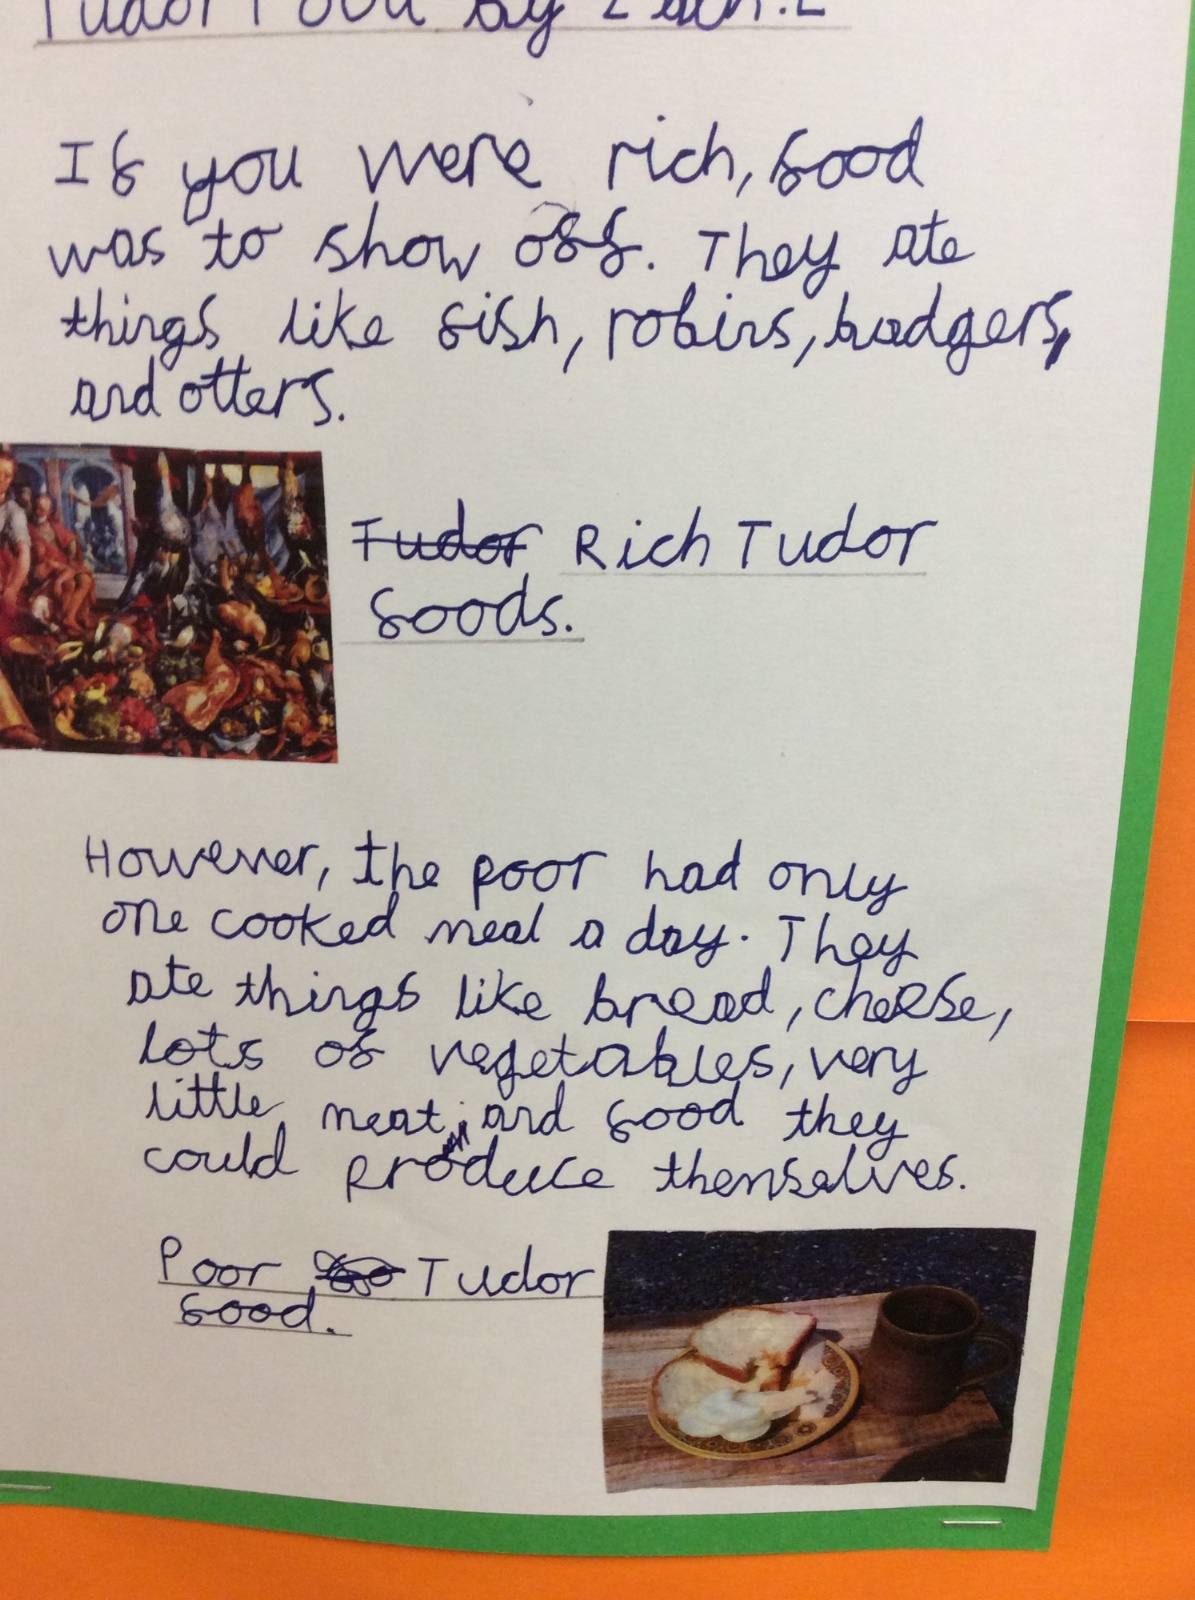 Tudor Food by Zach.L
If you were rich, food
was to show off. They ate
things like fish, robins, badgers,
and otters.
Tudor Rich Tudor
foods.
However, the poor had only
one cooked meal a day. They
ate things like bread, cheese,
lots of vegetables, very
little meat, and food they
could produce themselves.
Poor Tudor
food.